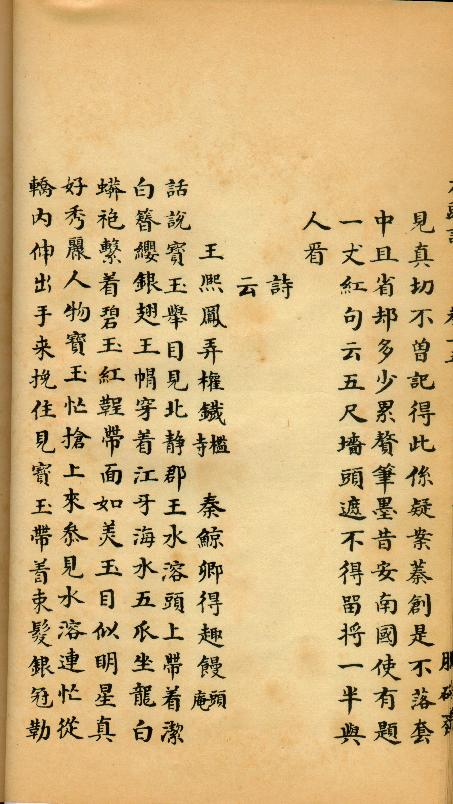 見真切不曾記得此係疑案纂創是不落套
中且省却多少累贅筆墨昔安南國使有題
一丈紅句云五尺墻頭遮不得畱将一半與
人看
詩
云
王熙鳳弄權鐵檻寺 秦鯨卿得趣饅頭庵
話說寶玉舉目見北静郡王水溶頭上帶着潔
白簪纓銀翅王帽穿着江牙海水五爪坐龍白
蟒袍繫着碧玉紅鞓帶面如美玉目似明星真
好秀麗人物寶玉忙搶上來叅見水溶連忙從
轎内伸出手来挽住見寶玉帶着束髮銀冠勒